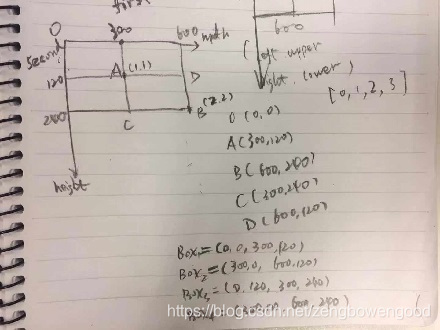 first
O 300 600 width
600
second
A (1,1) D
120
(left upper
right lower)
[0, 1, 2, 3]
240 B (2,2)
C
O (0,0)
A(300,120)
B(600,240)
C(300,240)
D(600,120)
height
Box₁=(0, 0, 300,120)
Box₂=(300,0, 600,120)
Box₃=(0, 120, 300, 240)
600, 240)
https://blog.csdn.net/zengbowengood